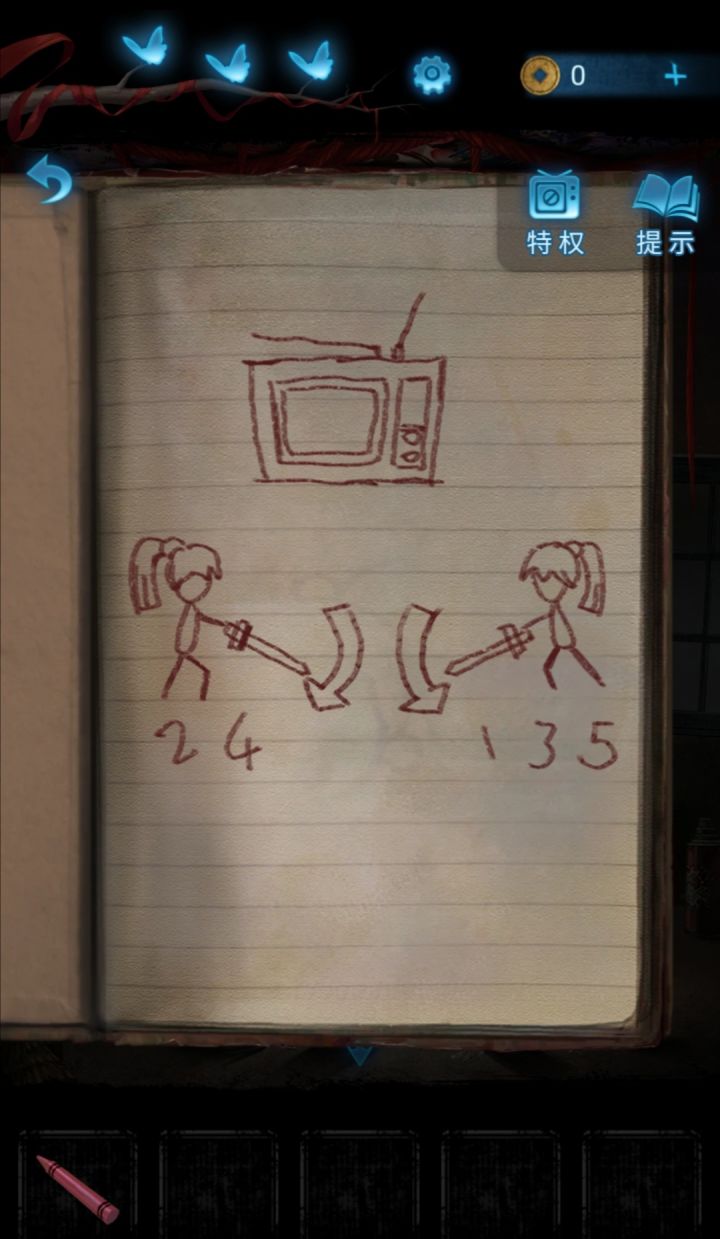 0
特权 提示
24 135